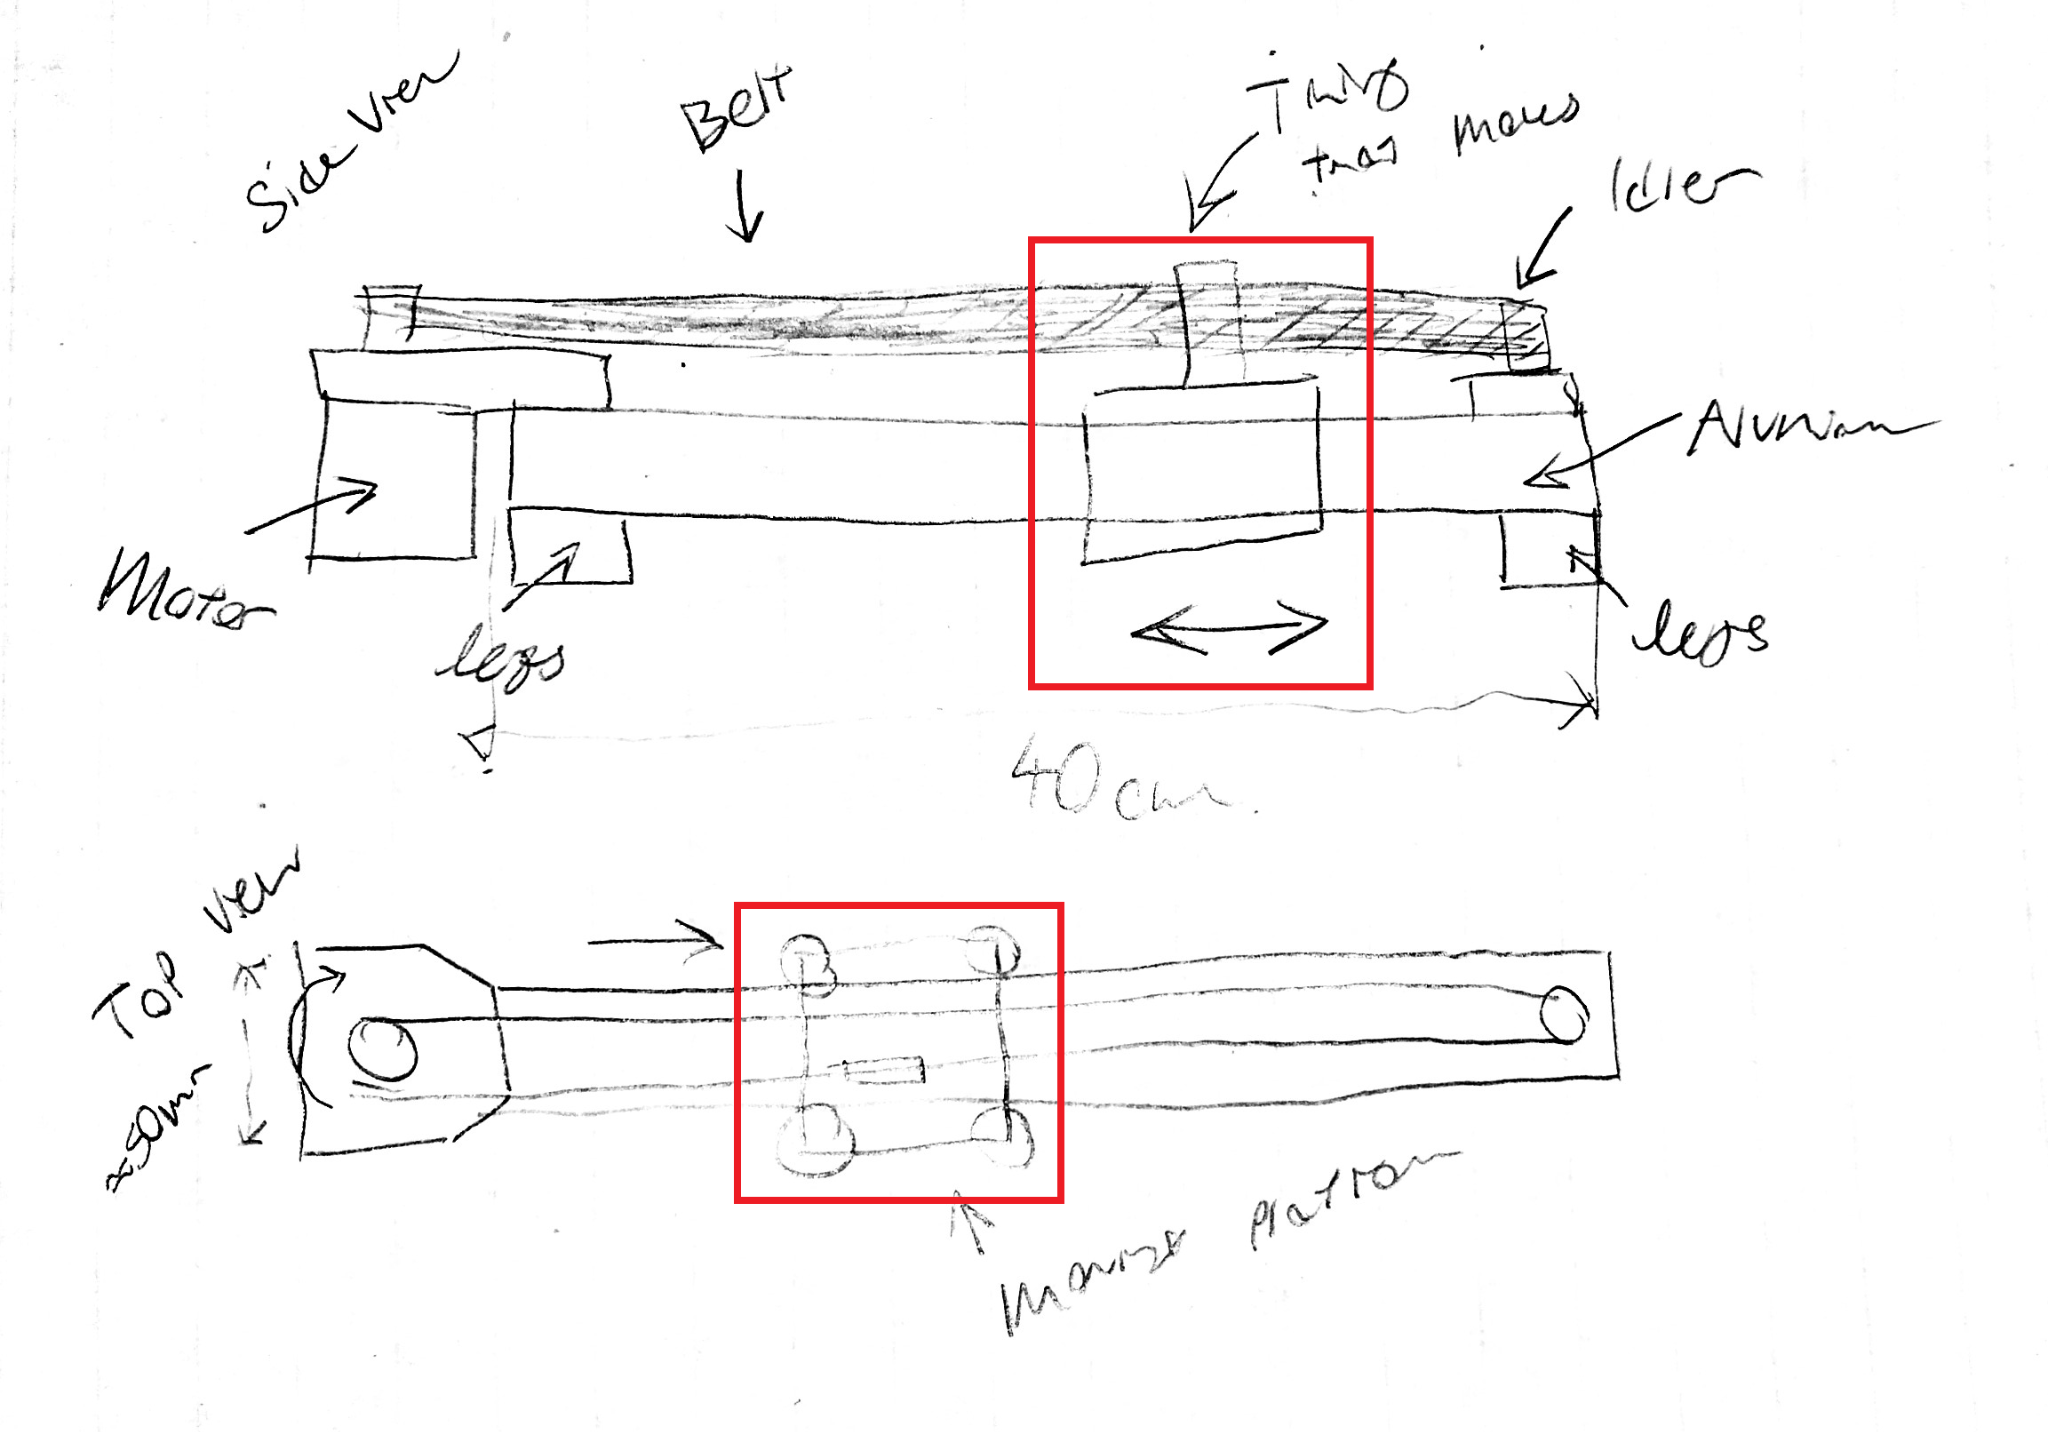 Side View
Belt
Thing
that moves
Idler
Aluminum
Motor
legs
legs
40cm
Top View
≈50mm
moving platform